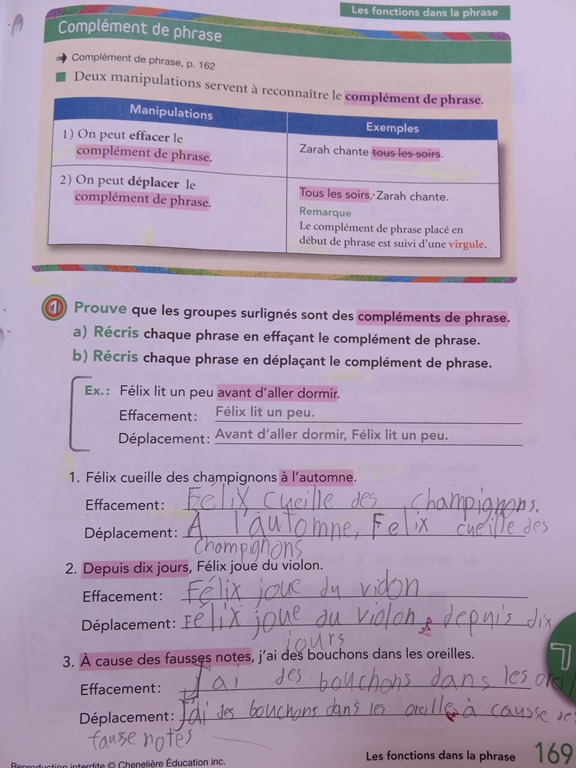 Les fonctions dans la phrase
Complément de phrase
Complément de phrase, p. 162
Deux manipulations servent à reconnaître le complément de phrase.
Manipulations
Exemples
1) On peut effacer le
complément de phrase.
Zarah chante tous les soirs.
2) On peut déplacer le
complément de phrase.
Tous les soirs, Zarah chante.
Remarque
Le complément de phrase placé en
début de phrase est suivi d'une virgule.
1 Prouve que les groupes surlignés sont des compléments de phrase.
a) Récris chaque phrase en effaçant le complément de phrase.
b) Récris chaque phrase en déplaçant le complément de phrase.
Ex.: Félix lit un peu avant d'aller dormir.
Effacement: Félix lit un peu.
Déplacement: Avant d'aller dormir, Félix lit un peu.
1. Félix cueille des champignons à l'automne.
Effacement: Felix cueille des champignons.
Déplacement: À l'automne, Felix cueille des
champignons
2. Depuis dix jours, Félix joue du violon.
Effacement: Félix joue du vidon
Déplacement: Félix joue du violon, depuis dix
jours
3. À cause des fausses notes, j'ai des bouchons dans les oreilles.
Effacement: J'ai des bouchons dans les orei
Déplacement: J'ai des bouchons dans les oreille à causse des
fausse notes
7
Reproduction interdite © Chenelière Éducation inc.
Les fonctions dans la phrase 169